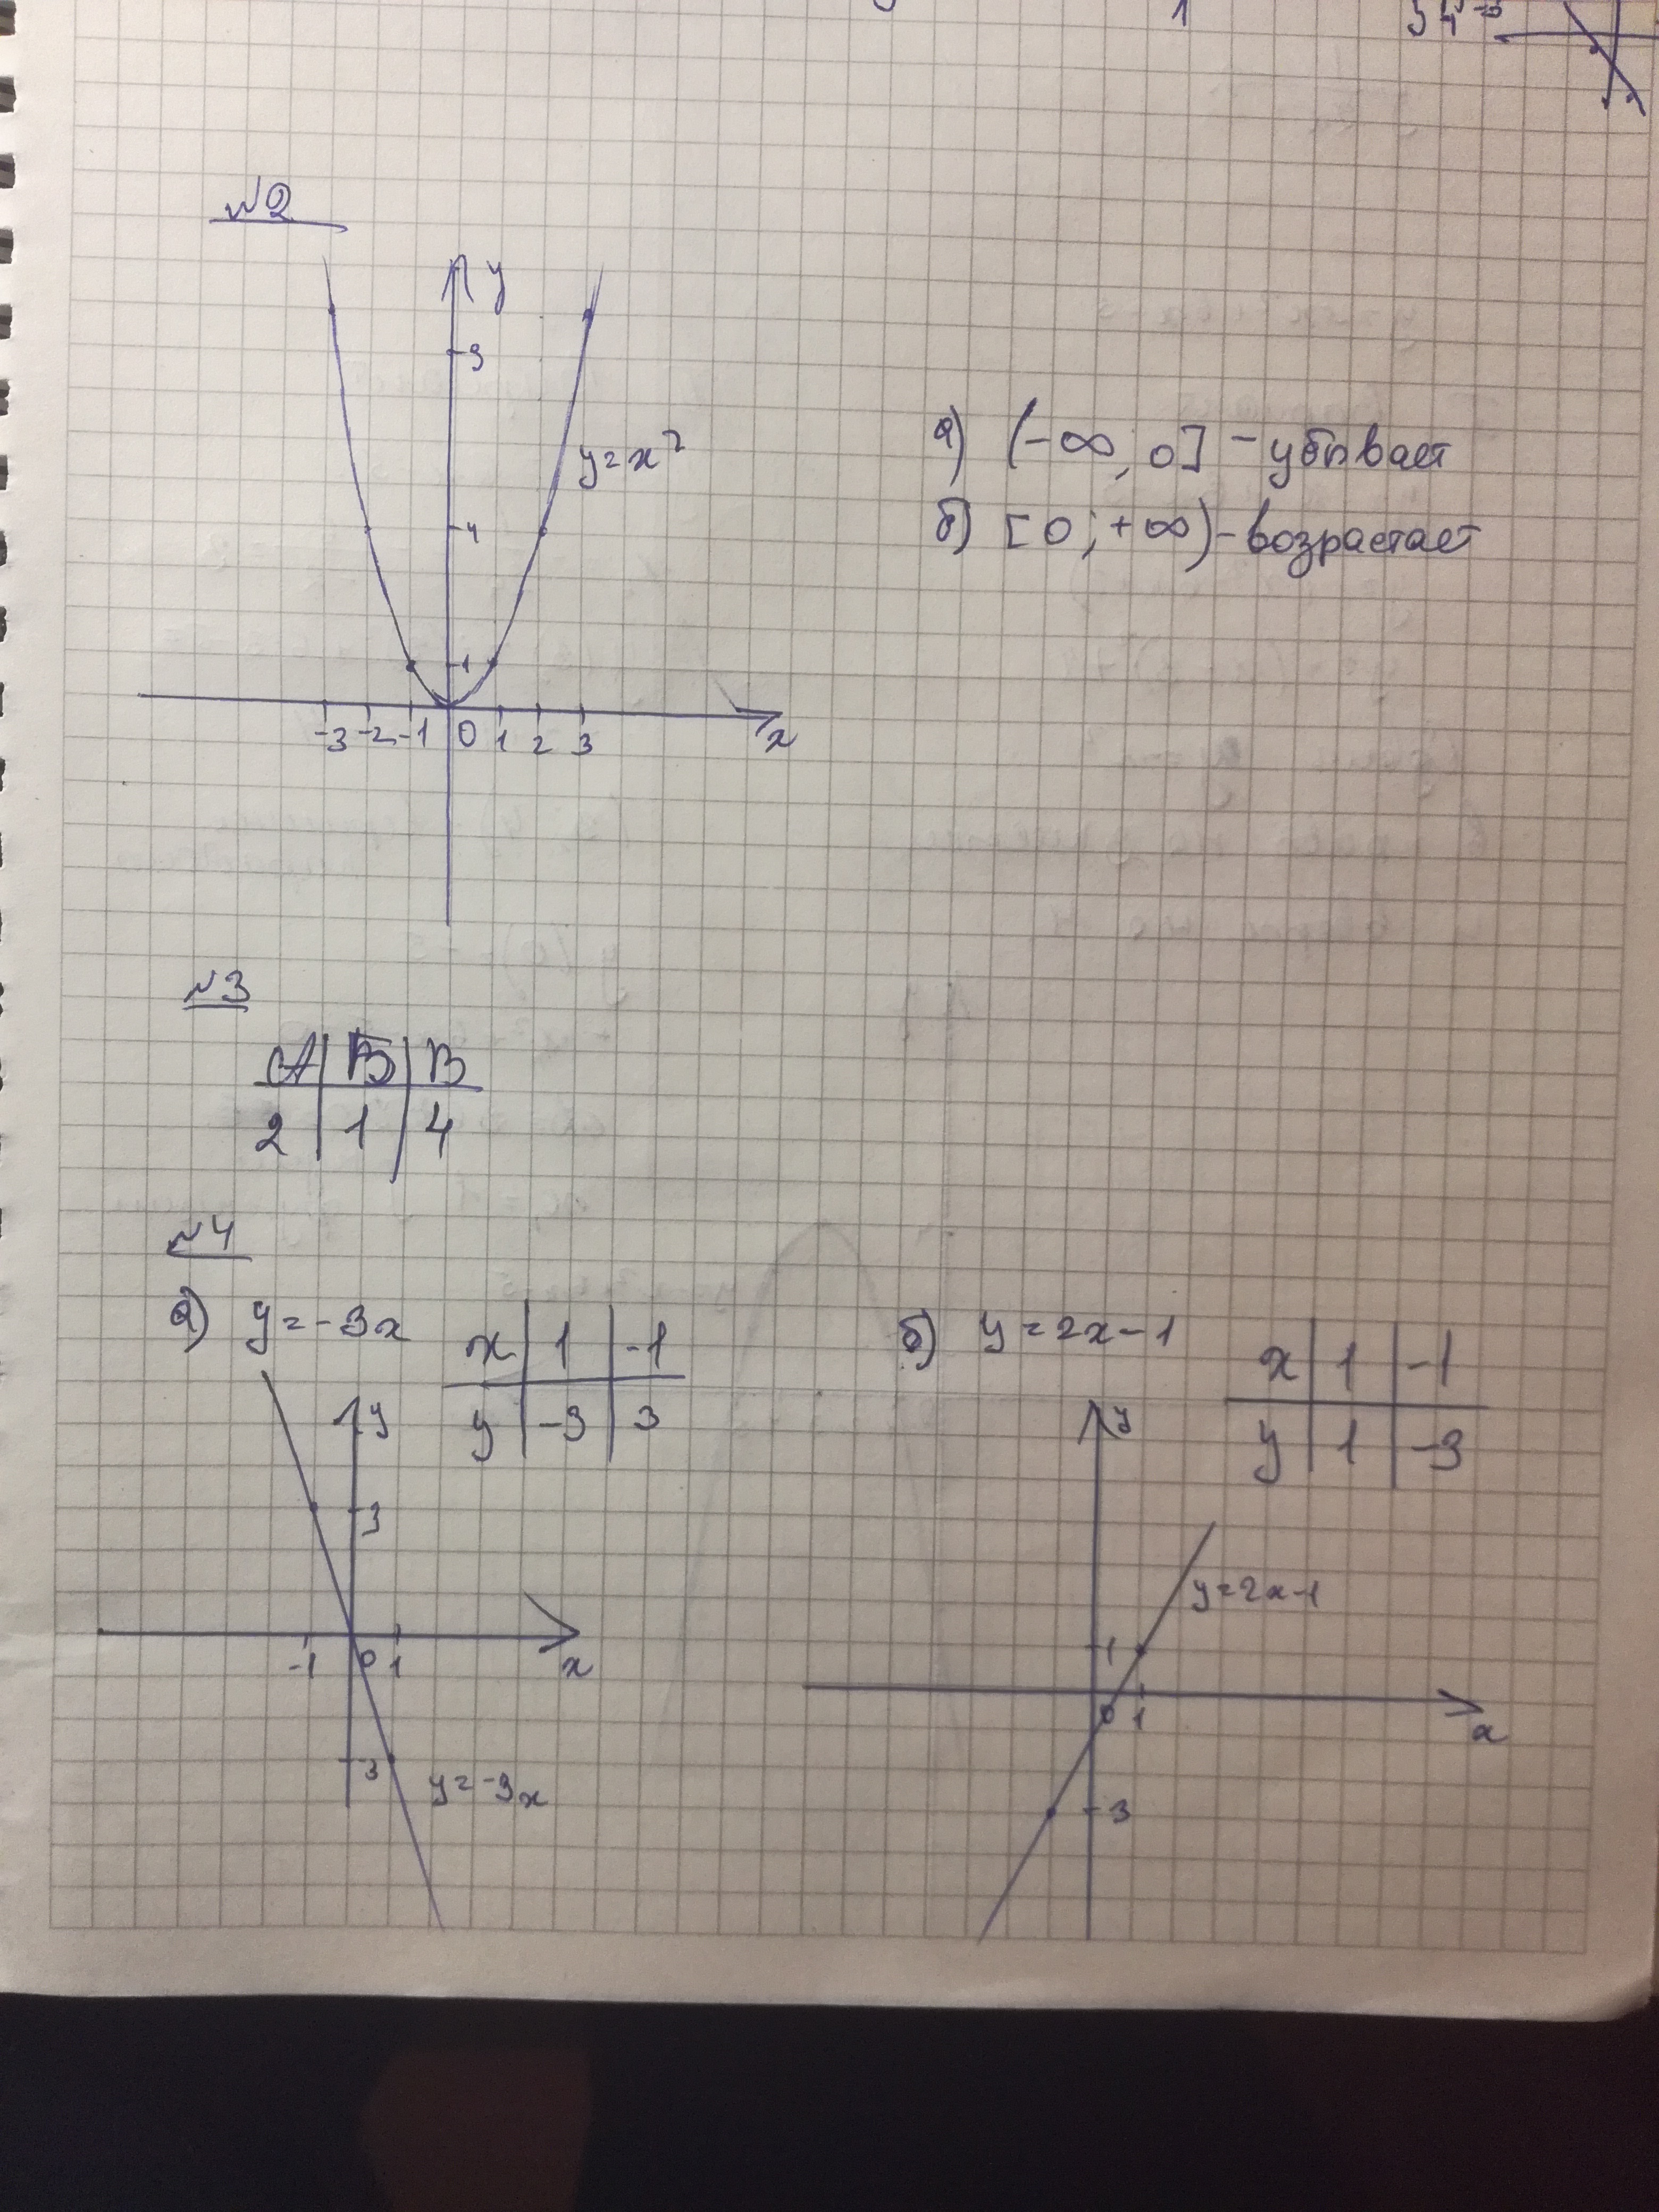 1
№2
y
9
y=x²
4
1
-3 -2 -1 0 1 2 3 x
а) (-∞, 0] - убывает
б) [0; +∞) - возрастает
№3
А | Б | В
2 | 1 | 4
№4
а) y = -3x
x | 1 | -1
y | -3 | 3
y
3
-1 0 1 x
-3
y = -3x
б) y = 2x - 1
x | 1 | -1
y | 1 | -3
y
y=2x-1
1
0 1 x
-3